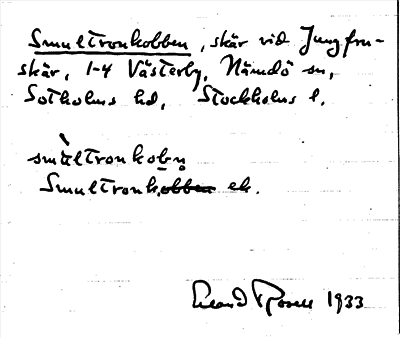 Smultronkobben, skär vid Jungfru-
skär, 1-4 Västerby, Nämdö sn,
Sotholms hd, Stockholms l.
smùltronkobm̥
Smultronkobben ek.
1933